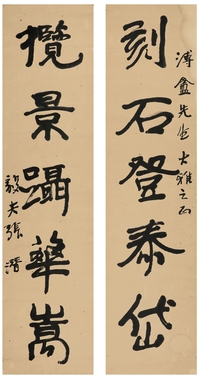 溥鑫先生大雅之正
刻石登泰岱
攬景躡華嵩
毅夫張潛